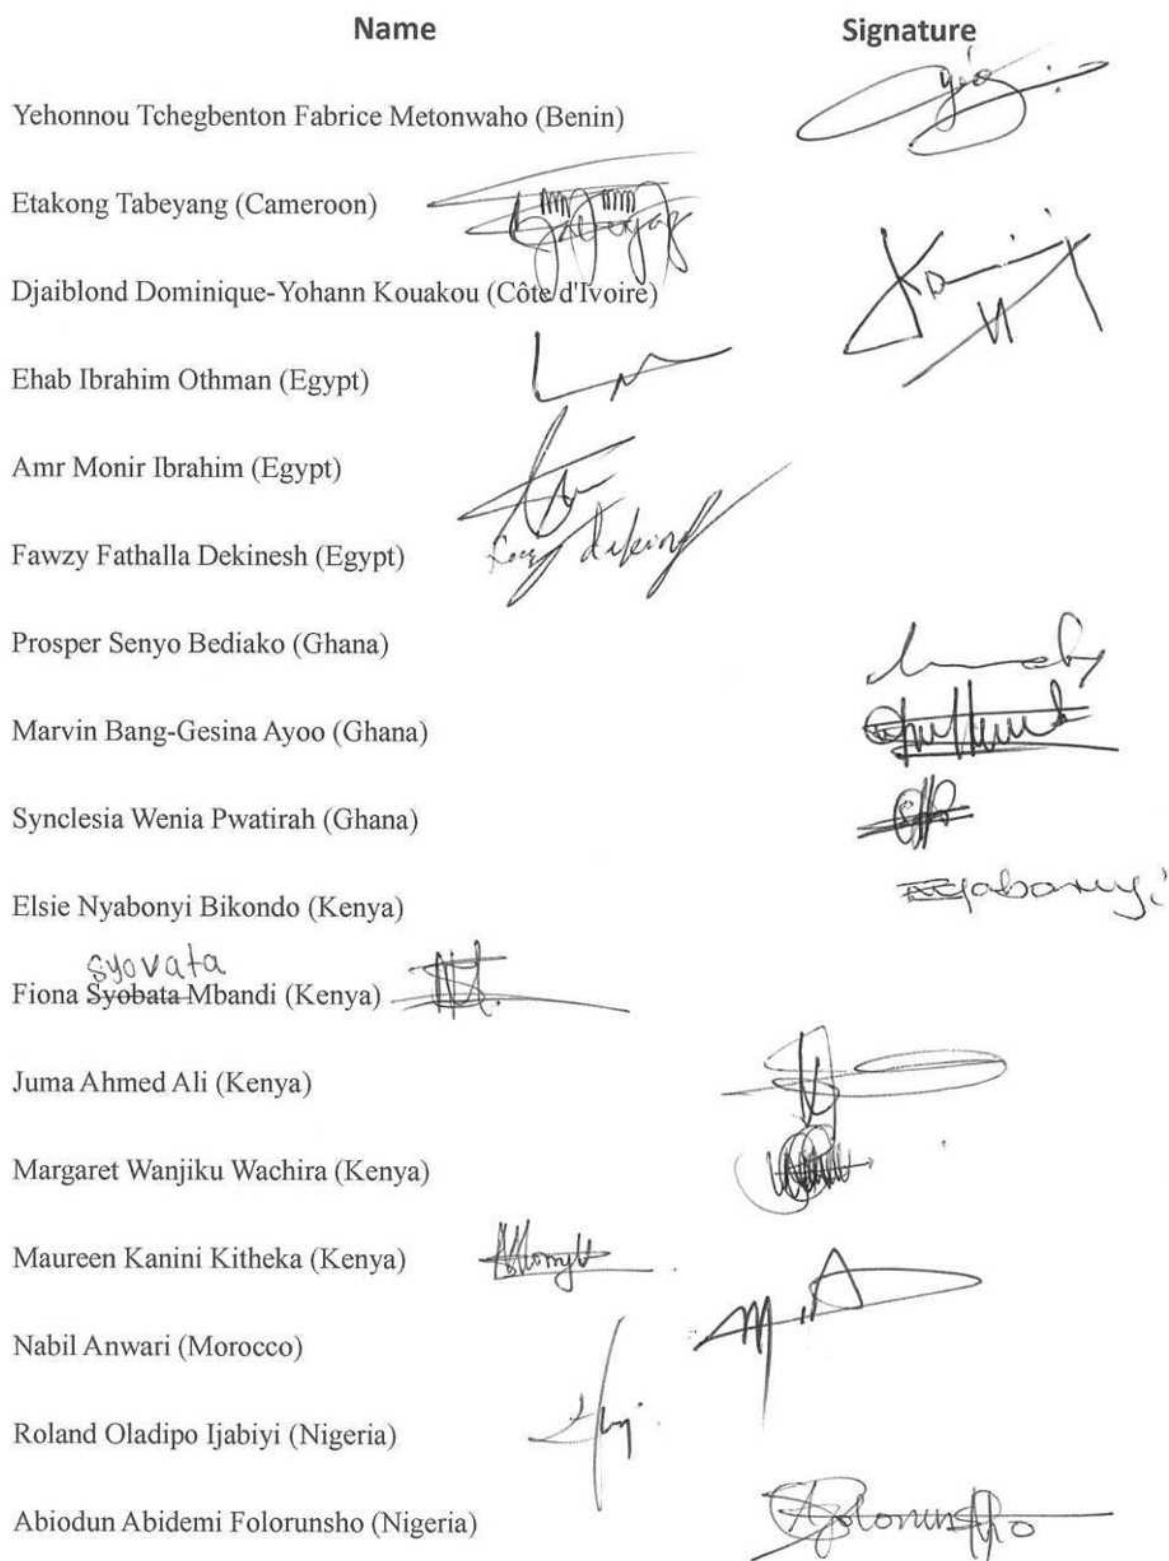 Name Signature
Yehonnou Tchegbenton Fabrice Metonwaho (Benin)
Etakong Tabeyang (Cameroon)
Djaiblond Dominique-Yohann Kouakou (Côte d'Ivoire)
Ehab Ibrahim Othman (Egypt)
Amr Monir Ibrahim (Egypt)
Fawzy Fathalla Dekinesh (Egypt)
Prosper Senyo Bediako (Ghana)
Marvin Bang-Gesina Ayoo (Ghana)
Synclesia Wenia Pwatirah (Ghana)
Elsie Nyabonyi Bikondo (Kenya)
syovata
Fiona Syobata Mbandi (Kenya)
Juma Ahmed Ali (Kenya)
Margaret Wanjiku Wachira (Kenya)
Maureen Kanini Kitheka (Kenya)
Nabil Anwari (Morocco)
Roland Oladipo Ijabiyi (Nigeria)
Abiodun Abidemi Folorunsho (Nigeria)